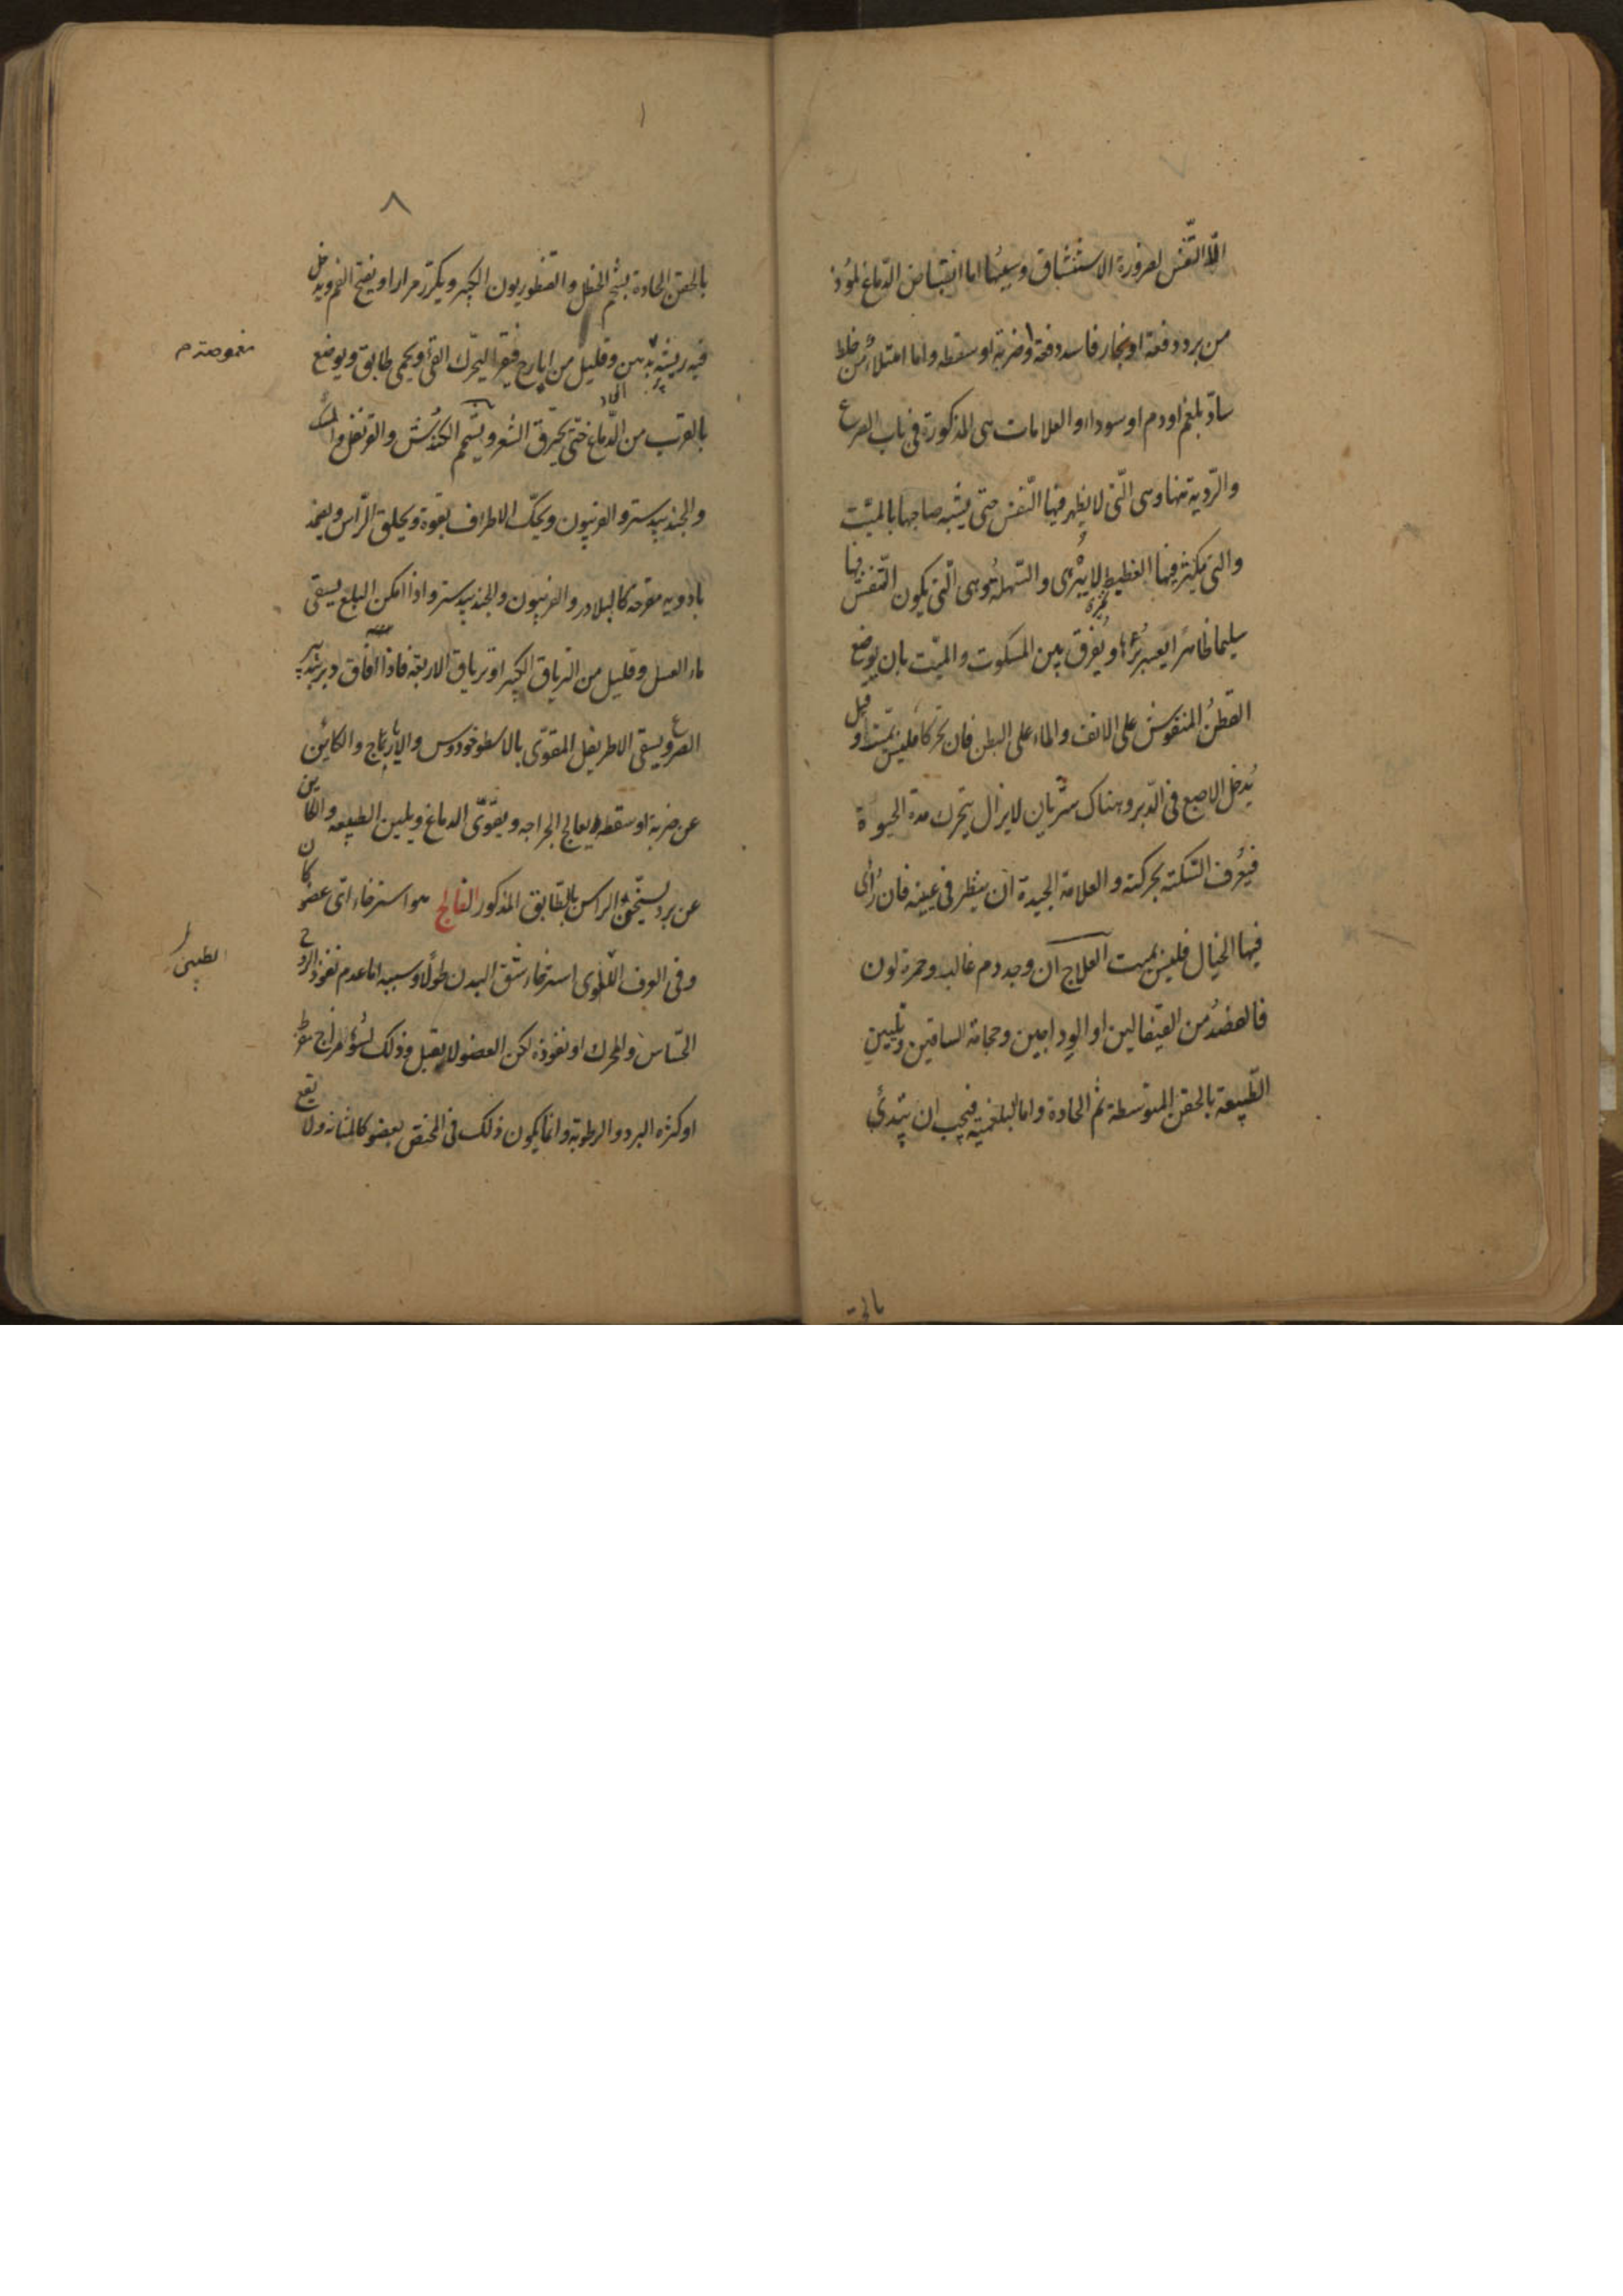 الّا التّنفّس لضرورة الاستنشاق وسببها اما انقباض الدّماغ لمؤذ
من برد دفعة او بخار فاسد دفعة او ضربة او سقطه واما امتلاء من خلط
سادّ بلغم او دم او سوداء والعلامات هى المذكورة فى باب الصرع
والرّدية منها وهى الّتى لا يظهر فيها النّفس حتى يشبه صاحبها بالميّت
والتى يكثر فيها الغطيط لا يبرى والسّهلة وهى الّتى يكون التّنفس فيها
سليما ظاهرًا يعسر برؤها ويفرق بين المسكوت والميّت بان يوضع
القطن المنفوش على الانف والماء على البطن فان تحركا فليس بميّت وقيل
يُدخل الاصبع فى الدّبر وهناك شريان لا يزال يتحرك مدة الحيوة
فيُعرف السّكتة بحركته والعلامة الجيدة ان ينظر فى عينه فان رُأى
فيها الخيال فليس بميت العلاج ان وجد دم غالب وحمرة لون
فالفصدُ من القيفالين او الوداجين وحجامة الساقين وتليين
الطّبيعة بالحقن المتوسطة ثم الحادة واما البلغميّة فيجب ان يبتدئ
بالحقـ
٨
بالحقن الحادة بشحم الحنظل والقنطوريون الكبير ويكرّر مرارا ويفتح الفم ويدخل
فيه ريشة بدهن وقليل من ايارج فيقرا ليتحرّك القئ ويحمى طابق ويوضع
بالقرب من الدّماغ حتّى يحترق الشعر ويشمم الكندُش والقرنفل والمسك
والجندبيدستر والفربيون ويحكّ الاطراف بقوة ويحلق الرّاس ويضمد
بادويه مقرحه كالبلادر والفربيون والجندبيدستر واذا امكن البلع يسقى
ماء العسل وقليل من الترياق الكبير او ترياق الاربعة فاذا افاق دبر بتدبير
الصرع ويسقى الاطريفل المقوّى بالاسطوخودوس والايارج والكائن
عن ضربة او سقطه يعالج الجراحه ويقوّى الدماغ ويلين الطبيعه والكاين
عن برد يسخّن الراس بالطّابق المذكور الفالج هو استرخاء اىّ عضو كان
وفى العرف اللّغوى استرخاء شق البدن طولًا وسببه اما عدم نفوذ الروح
الحسّاس والمحرك او نفوذه لكن العضو لا يقبل وذلك لسوء مزاج مفرط
او كثره البرد والرطوبة وانما يكون ذلك فى المختص بعضو كالمثانه ولا يقع